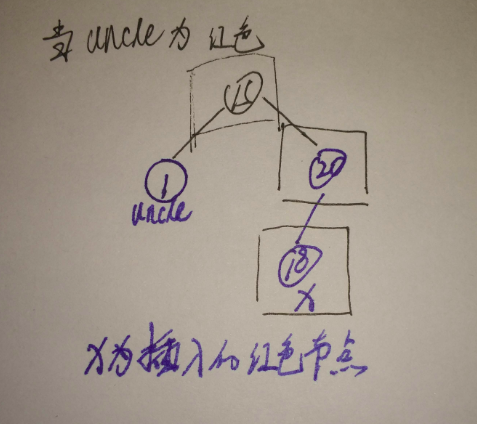 当uncle为红色
15
20
1
uncle
18
x
x为插入的红色节点